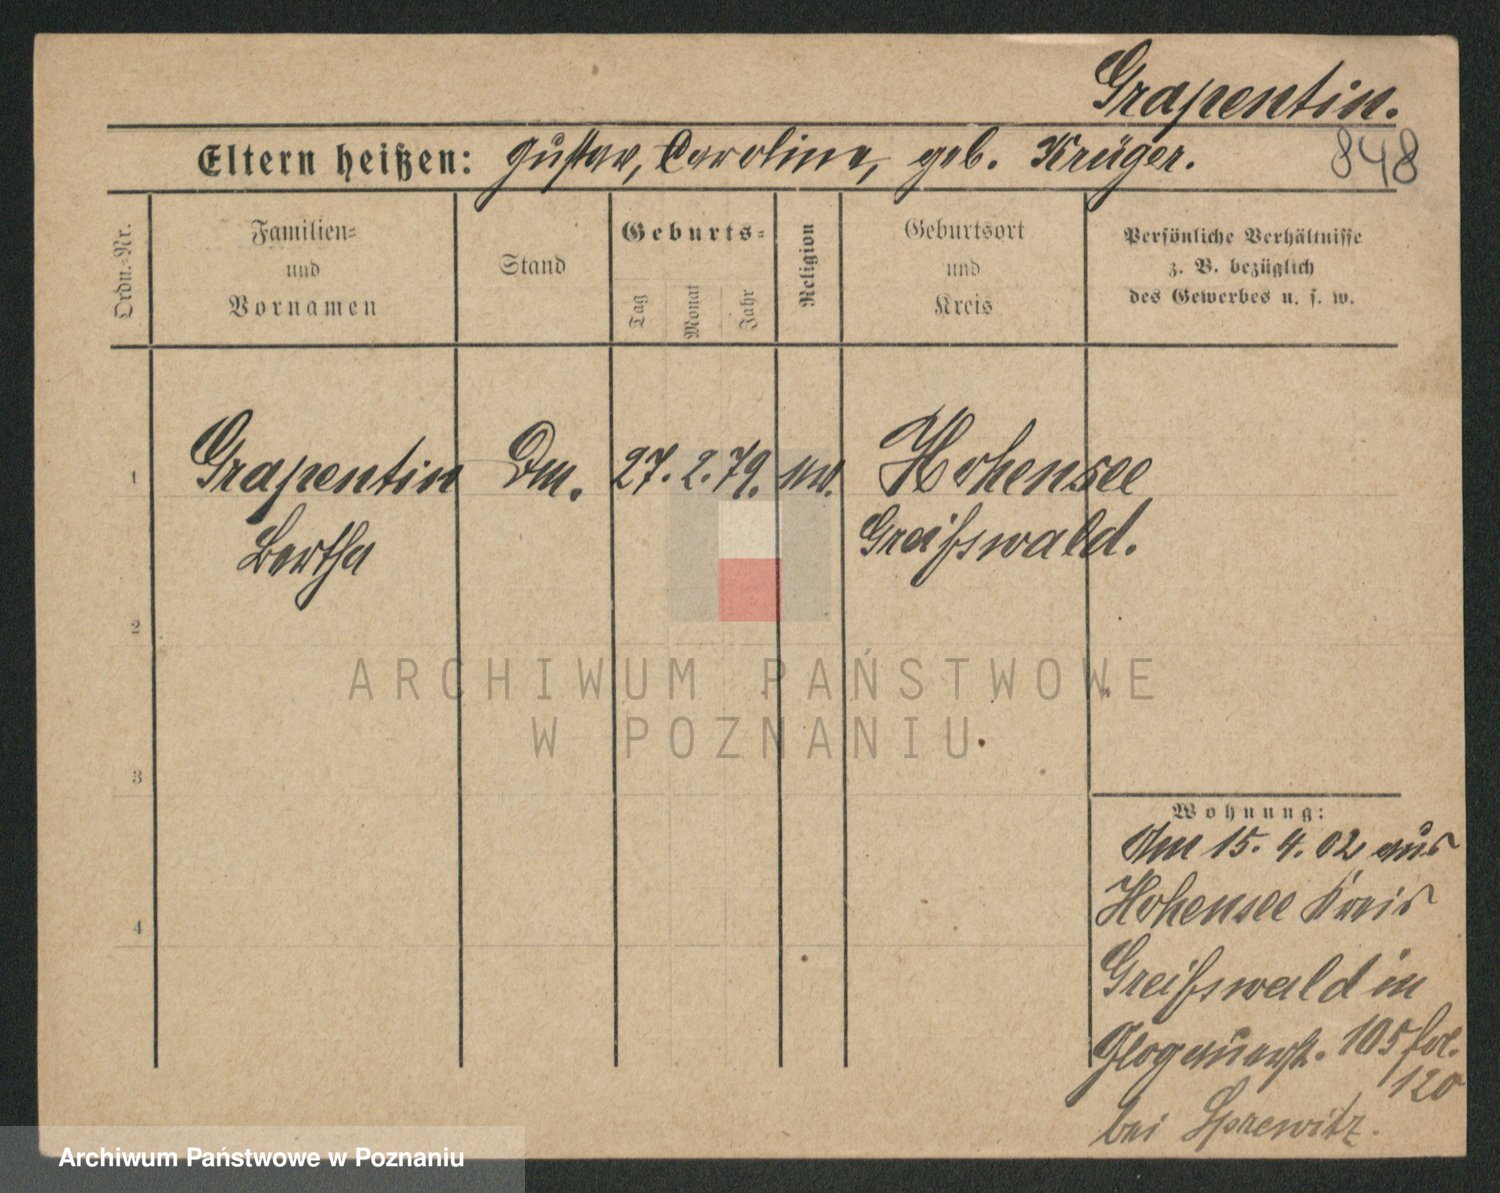 Grapentin.
Eltern heißen: Gustav, Caroline, geb. Krüger.
848
Ordn.-Nr.
Familien-
und
Vornamen
Stand
Geburts-
Tag
Monat
Jahr
Religion
Geburtsort
und
Kreis
Persönliche Verhältnisse
z. B. bezüglich
des Gewerbes u. s. w.
1 Grapentin Dm. 27. 2. 79. Hohensee
Bertha Greifswald.
2
3
4
ARCHIWUM PAŃSTWOWE
W POZNANIU
Wohnung:
Am 15. 4. 02 aus
Hohensee Kreis
Greifswald in
Glogauerstr. 105 fol.
120
bei Sprewitz.
Archiwum Państwowe w Poznaniu